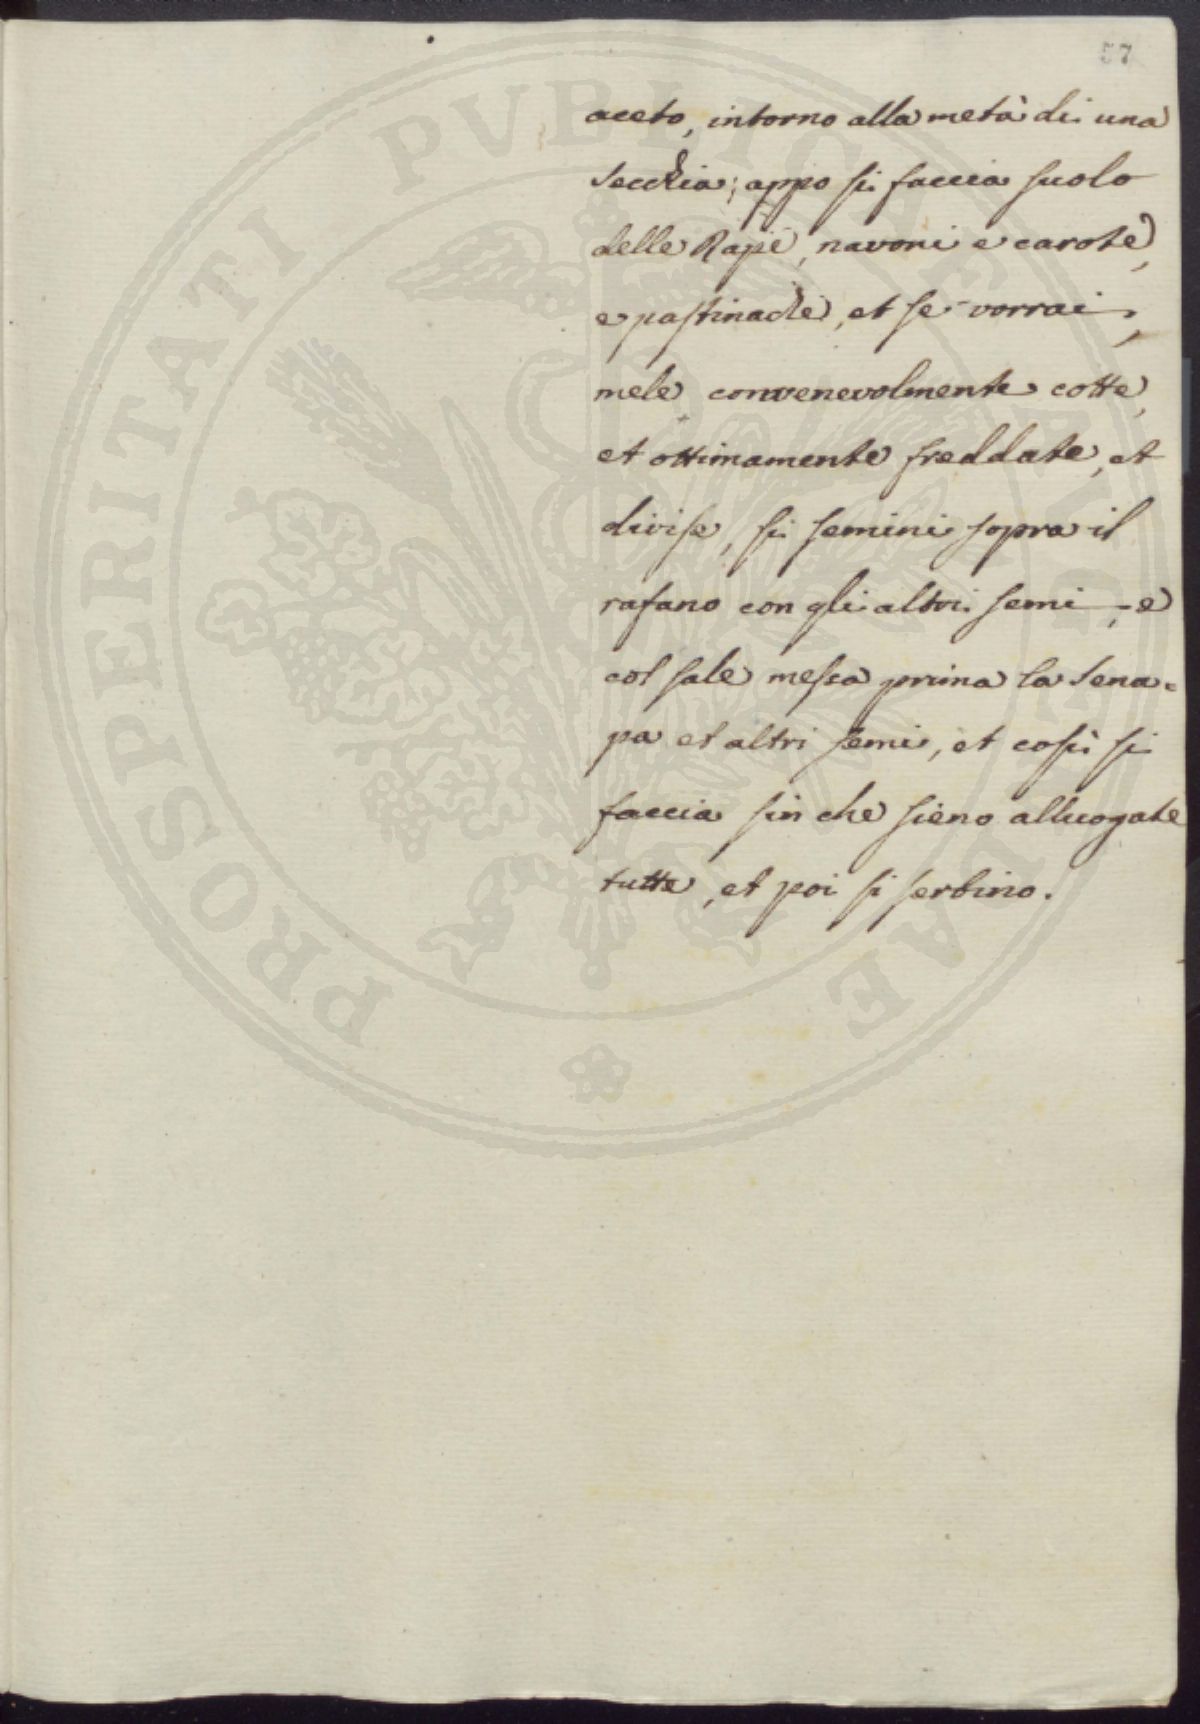 57
aceto, intorno alla metà di una
secchia; appo si faccia suolo
delle Rape, navoni e carote,
e pastinache, et se vorrai,
mele convenevolmente cotte,
et ottimamente freddate, et
divise, si semini sopra il
rafano con gli altri semi, e
col sale messa prima la sena=
pa et altri semi, et così si
faccia sin che sieno alluogate
tutte, et poi si serbino.
PROSPERITATI PVBLICAE AVGENDAE